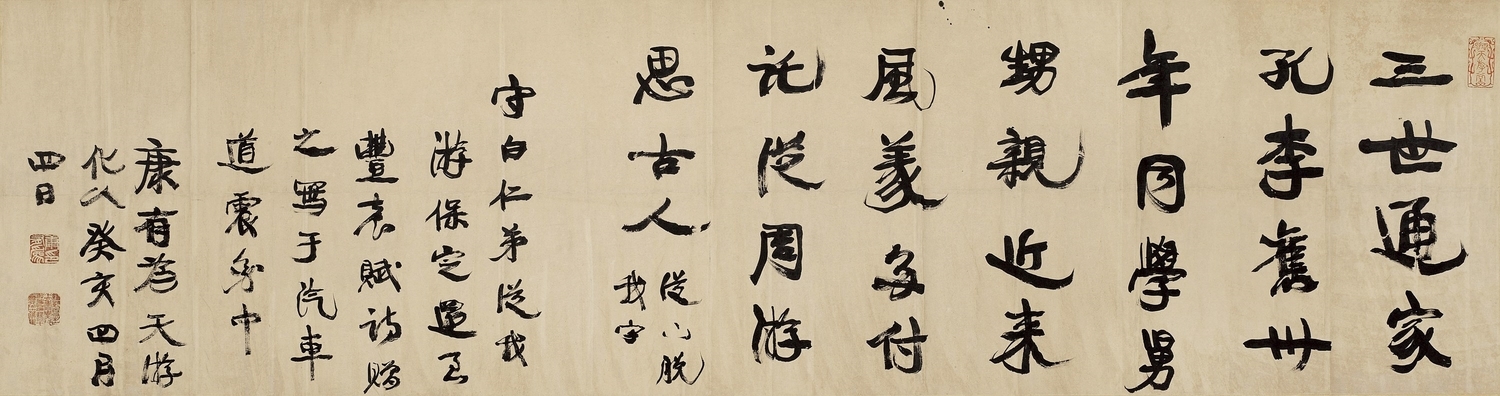 三世通家
孔李舊卅
年同學舅
甥親近来
風義多付
託從周游
思古人
從下脫
我字
守白仁弟從我
游保定還至
豐臺賦詩贈
之寫于汽車
道震中
康有為天游
化人癸亥四月
四日